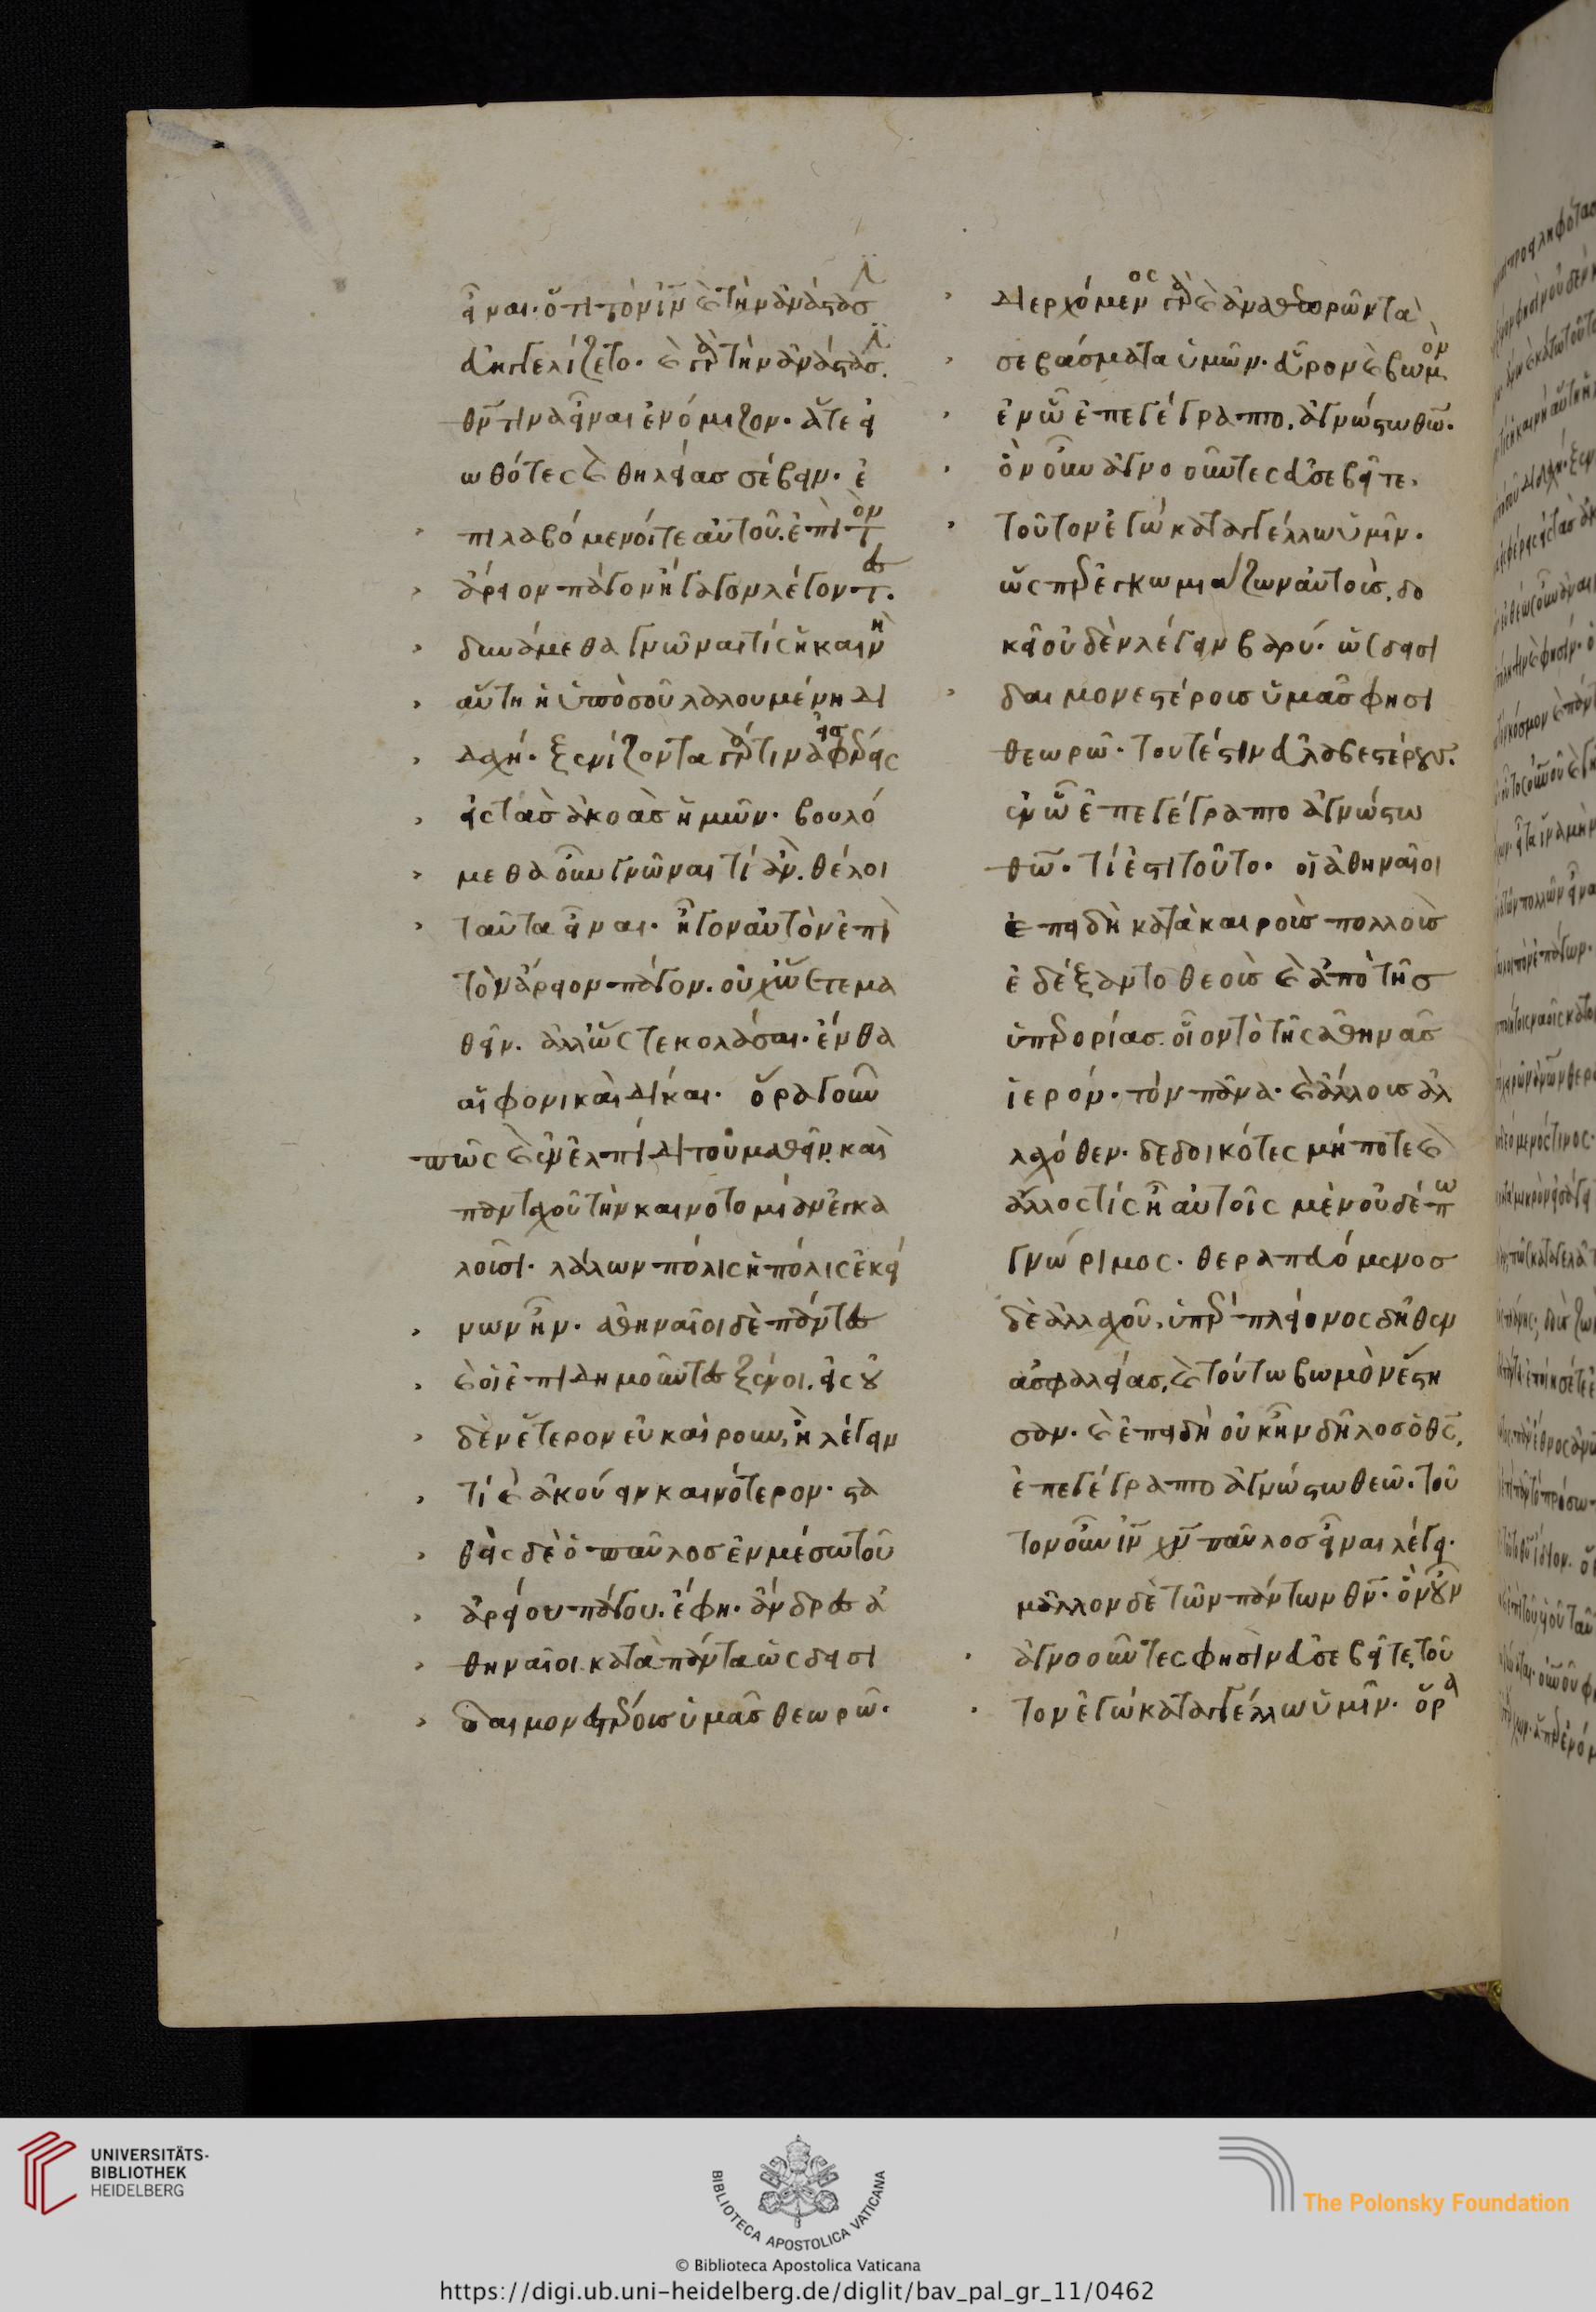 εἶναι. ὅτι τὸν ἰν καὶ τὴν ἀνάστασ
εὐηγγελίζετο. καὶ γὰρ τὴν ἀνάστασ.
θν τινα εἶναι ἐνόμιζον. ἅτε εἰ
ωθότες καὶ θηλείας σέβειν. ἐ
πιλαβόμενοί τε αὐτοῦ. ἐπὶ τὸν
ἄρειον πάγον ἤγαγον λέγοντες.
δυνάμεθα γνῶναι τίς ἡ καινὴ
αὕτη ἡ ὑπὸ σοῦ λαλουμένη δι
δαχή. ξενίζοντα γάρ τινα εἰσφέρεις
εἰς τὰς ἀκοὰς ἡμῶν. βουλό
μεθα οὖν γνῶναι τί ἂν θέλοι
ταῦτα εἶναι. ἦγον αὐτὸν ἐπὶ
τὸν ἄρειον πάγον. οὐχ ὥστε μα
θεῖν. ἀλλ' ὥστε κολάσαι. ἔνθα
αἱ φονικαὶ δίκαι. ὅρα γοῦν
πῶς καὶ ἐν ἐλπίδι τοῦ μαθεῖν. καὶ
πανταχοῦ τὴν καινοτομίαν ἐγκα
λοῦσι. λάλων πόλις ἡ πόλις ἐκεί
νων ἦν. ἀθηναῖοι δὲ πάντες
καὶ οἱ ἐπιδημοῦντες ξένοι. εἰς οὐ
δὲν ἕτερον εὐκαίρουν, ἢ λέγειν
τί καὶ ἀκούειν καινότερον. στα
θεὶς δὲ ὁ παῦλος ἐν μέσω τοῦ
ἀρείου πάγου. ἔφη. ἄνδρες ἀ
θηναῖοι κατὰ πάντα ὡς δεισι
δαιμονεστέρους ὑμᾶς θεωρῶ.
διερχόμενος γὰρ καὶ ἀναθεωρῶν τὰ
σεβάσματα ὑμῶν. εὗρον καὶ βωμὸν
ἐν ὧ ἐπεγέγραπτο. ἀγνώστω θῶ.
ὃν οὖν ἀγνοοῦντες εὐσεβεῖτε.
τοῦτον ἐγὼ καταγγέλλω ὑμῖν.
ὥσπερ ἐγκωμιάζων αὐτοὺς, δο
κεῖ οὐδὲν λέγειν βαρύ. ὡς δεισι
δαιμονεστέρους ὑμᾶς φησι
θεωρῶ. τουτέστιν εὐλαβεστέρους.
ἐν ὧ ἐπεγέγραπτο ἀγνώστω
θῶ. τί ἐστι τοῦτο. οἱ ἀθηναῖοι
ἐπειδὴ κατὰ καιροὺς πολλοὺς
ἐδέξαντο θεοὺς καὶ ἀπὸ τῆς
ὑπερορίας. οἷον τὸ τῆς ἀθηνᾶς
ἱερόν. τὸν πᾶνα. καὶ ἄλλους ἀλ
λαχόθεν. δεδοικότες μήποτε καὶ
ἄλλος τίς ἦ αὐτοῖς μὲν οὐδέπω
γνώριμος. θεραπευόμενος
δὲ ἀλλαχοῦ. ὑπὲρ πλείονος δῆθεν
ἀσφαλείας, καὶ τούτω βωμὸν ἔστη
σαν. καὶ ἐπειδὴ οὐκ ἦν δῆλος ὁ θς,
ἐπεγέγραπτο ἀγνώστω θεῶ. τοῦ
τον οὖν ἰν χν παῦλος εἶναι λέγει.
μᾶλλον δὲ τῶν πάντων θν. ὃν οὖν
ἀγνοοῦντες φησὶν εὐσεβεῖτε, τοῦ
τον ἐγὼ καταγγέλλω ὑμῖν. ὅρα
UNIVERSITÄTS-
BIBLIOTHEK
HEIDELBERG
BIBLIOTECA APOSTOLICA VATICANA
The Polonsky Foundation
© Biblioteca Apostolica Vaticana
https://digi.ub.uni-heidelberg.de/diglit/bav_pal_gr_11/0462